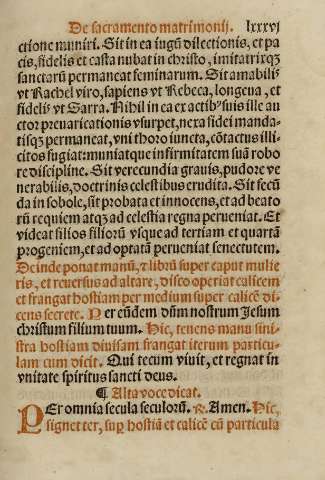 De sacramento matrimonij. lxxxvj
ctione muniri. Sit in ea iugũ dilectionis, et pa
cis, fidelis et casta nubat in christo, imitatrixqꝫ
sanctarũ permaneat feminarum. Sit amabilis
vt Rachel viro, sapiens vt Rebeca, longeua, et
fidelis vt Sarra. Nihil in ea ex actibꝰ suis ille au
ctor preuaricationis vsurpet, nexa fidei manda-
tisqꝫ permaneat, vni thoro iuncta, cõtactus illi
citos fugiat: muniatque infirmitatem suã robo
re discipline. Sit verecundia grauis, pudore ve
nerabilis, doctrinis celestibus erudita. Sit fecũ
da in sobole, sit probata et innocens, et ad beato
rũ requiem atqꝫ ad celestia regna perueniat. Et
videat filios filiorũ vsque ad tertiam et quartã
progeniem, et ad optatã perueniat senectutem.
Deinde ponat manũ, ⁊ librũ super caput mulie
ris, et reuersus ad altare, disco operiat calicem
et frangat hostiam per medium super calicẽ di
cens secrete. Per eũdem dñm nostrum Jesum
christum filium tuum. Hic, tenens manu sini
stra hostiam diuisam frangat iterum particu
lam cum dicit. Qui tecum viuit, et regnat in
vnitate spiritus sancti deus.
¶ Alta voce dicat.
PEr omnia secula seculorũ. ℞. Amen. Hic,
signet ter, suꝑ hostiã et calicẽ cũ particula